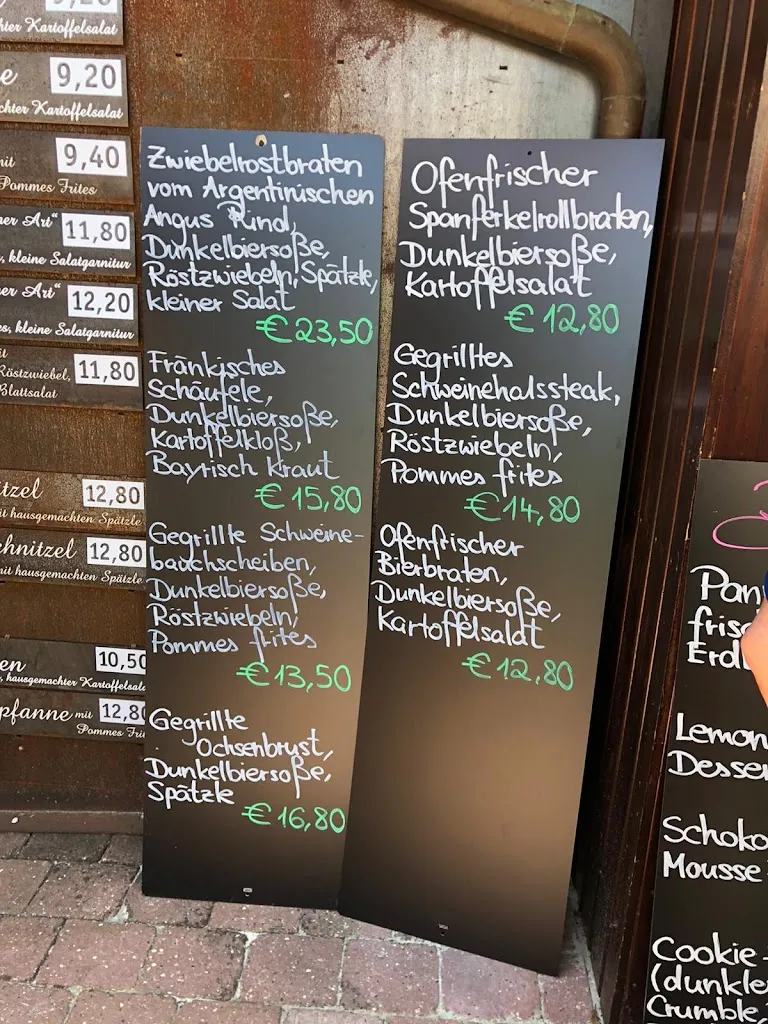 chter Kartoffelsalat
9,20
chter Kartoffelsalat
9,40
mit
Pommes Frites
ner Art"
11,80
, kleine Salatgarnitur
ner Art"
12,20
es, kleine Salatgarnitur
11,80
Röstzwiebel,
Blattsalat
tzel
12,80
mit hausgemachten Spätzle
chnitzel
12,80
mit hausgemachten Spätzle
en
10,50
, hausgemachter Kartoffelsala
pfanne mit
12,80
Pommes Frit
Zwiebelrostbraten
vom Argentinischen
Angus Rind,
Dunkelbiersoße,
Röstzwiebeln, Spätzle,
kleiner Salat
€ 23,50
Fränkisches
Schäufele,
Dunkelbiersoße,
Kartoffelkloß,
Bayrisch Kraut
€ 15,80
Gegrillte Schweine-
bauchscheiben,
Dunkelbiersoße,
Röstzwiebeln,
Pommes frites
€ 13,50
Gegrillte
Ochsenbrust,
Dunkelbiersoße,
Spätzle
€ 16,80
Ofenfrischer
Spanferkelrollbraten,
Dunkelbiersoße,
Kartoffelsalat
€ 12,80
Gegrilltes
Schweinehalssteak,
Dunkelbiersoße,
Röstzwiebeln,
Pommes frites
€ 14,80
Ofenfrischer
Bierbraten,
Dunkelbiersoße,
Kartoffelsalat
€ 12,80
Pan
frisc
Erdb
Lemon
Desser
Schoko
Mousse
Cookie-
(dunkle
Crumble,